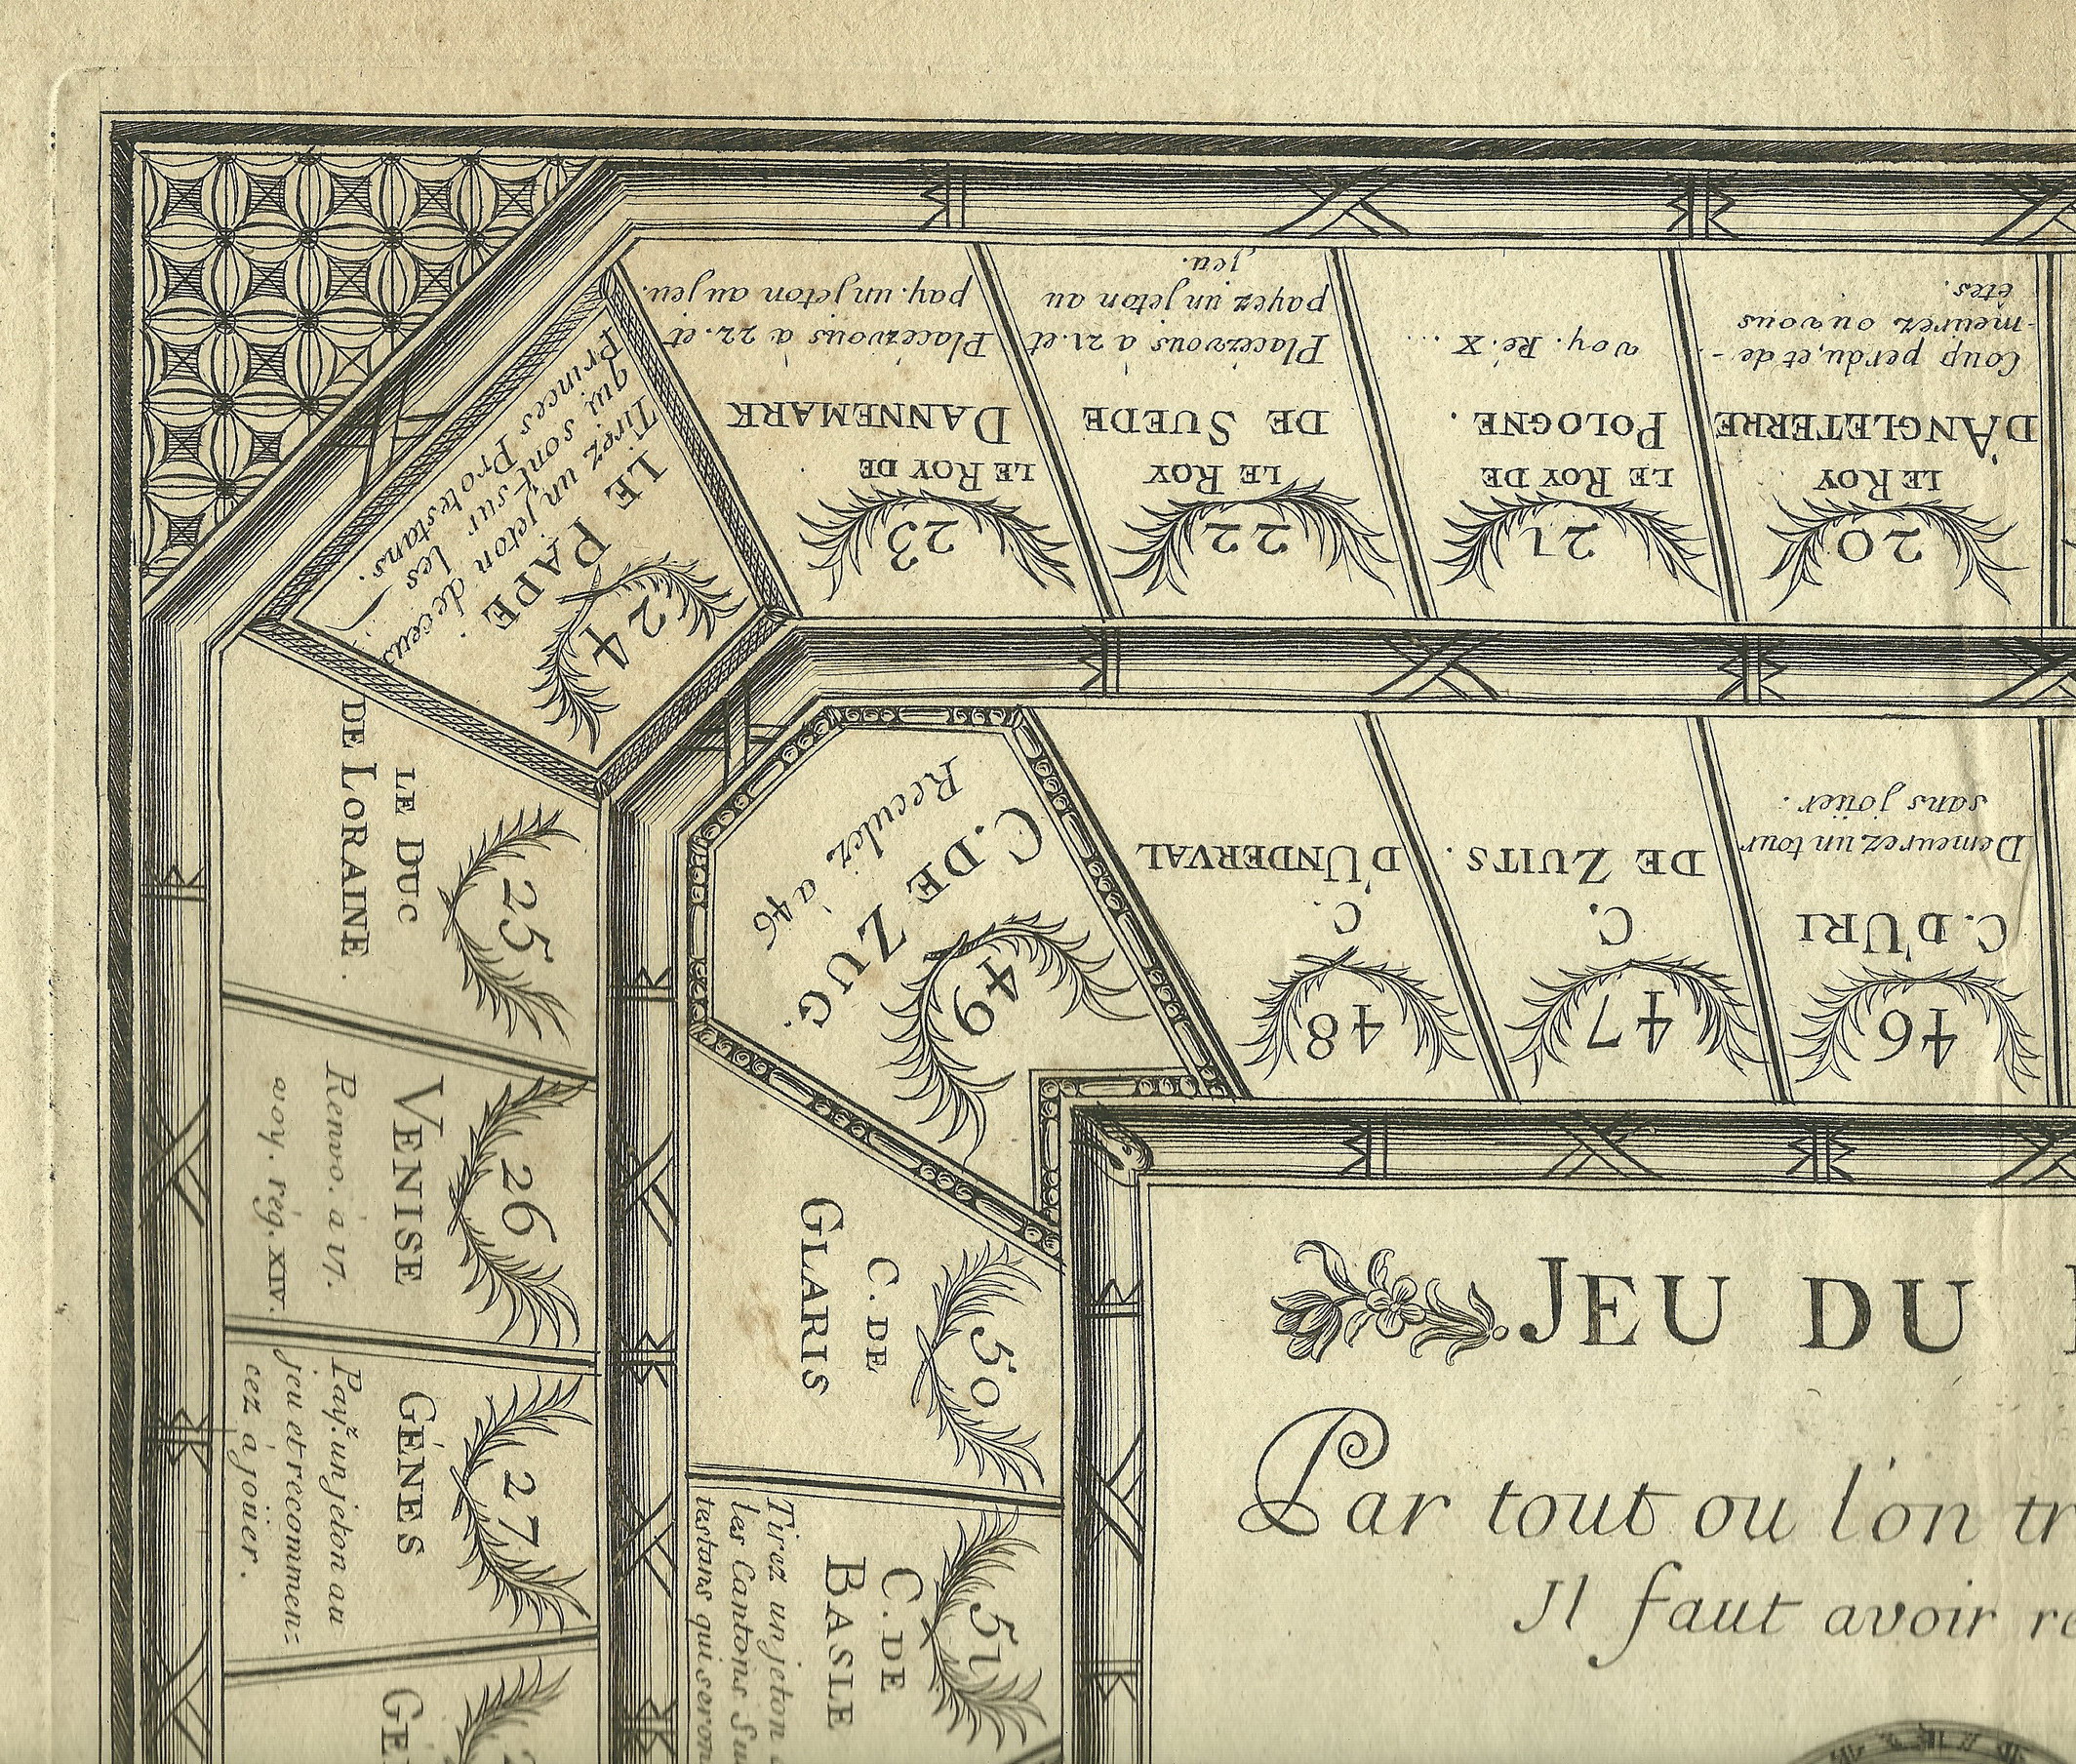 20
LE ROY
D'ANGLETERRE
Coup perdu, et de-
-meurez ou vous
êtes.
21
LE ROY DE
POLOGNE.
voy. Re. X...
22
LE ROY
DE SUEDE
Placez vous a 21. et
payez un jeton au
jeu.
23
LE ROY DE
DANNEMARK
Placez vous a 22. et
pay. un jeton au jeu.
24
LE PAPE
Tirez un jeton de ceux
qui sont sur les
Princes Protestans.
25
LE DUC
DE LORAINE.
26
VENISE
Renvo. à 17.
voy. rég. XIV.
27
GÉNES
Payz. un jeton au
jeu et recommen=
cez à joüer.
GE
46
C. D'URI
Demeurez un tour
sans joüer.
47
C.
DE ZUITS.
48
C.
D'UNDERVAL
49
C. DE ZUG.
Reculez à 46
50
C. DE
GLARIS
51
C. DE
BASLE
Tirez un jeton
les Cantons Su
testans qui seron
JEU DU
Par tout ou l'on tr
Il faut avoir re